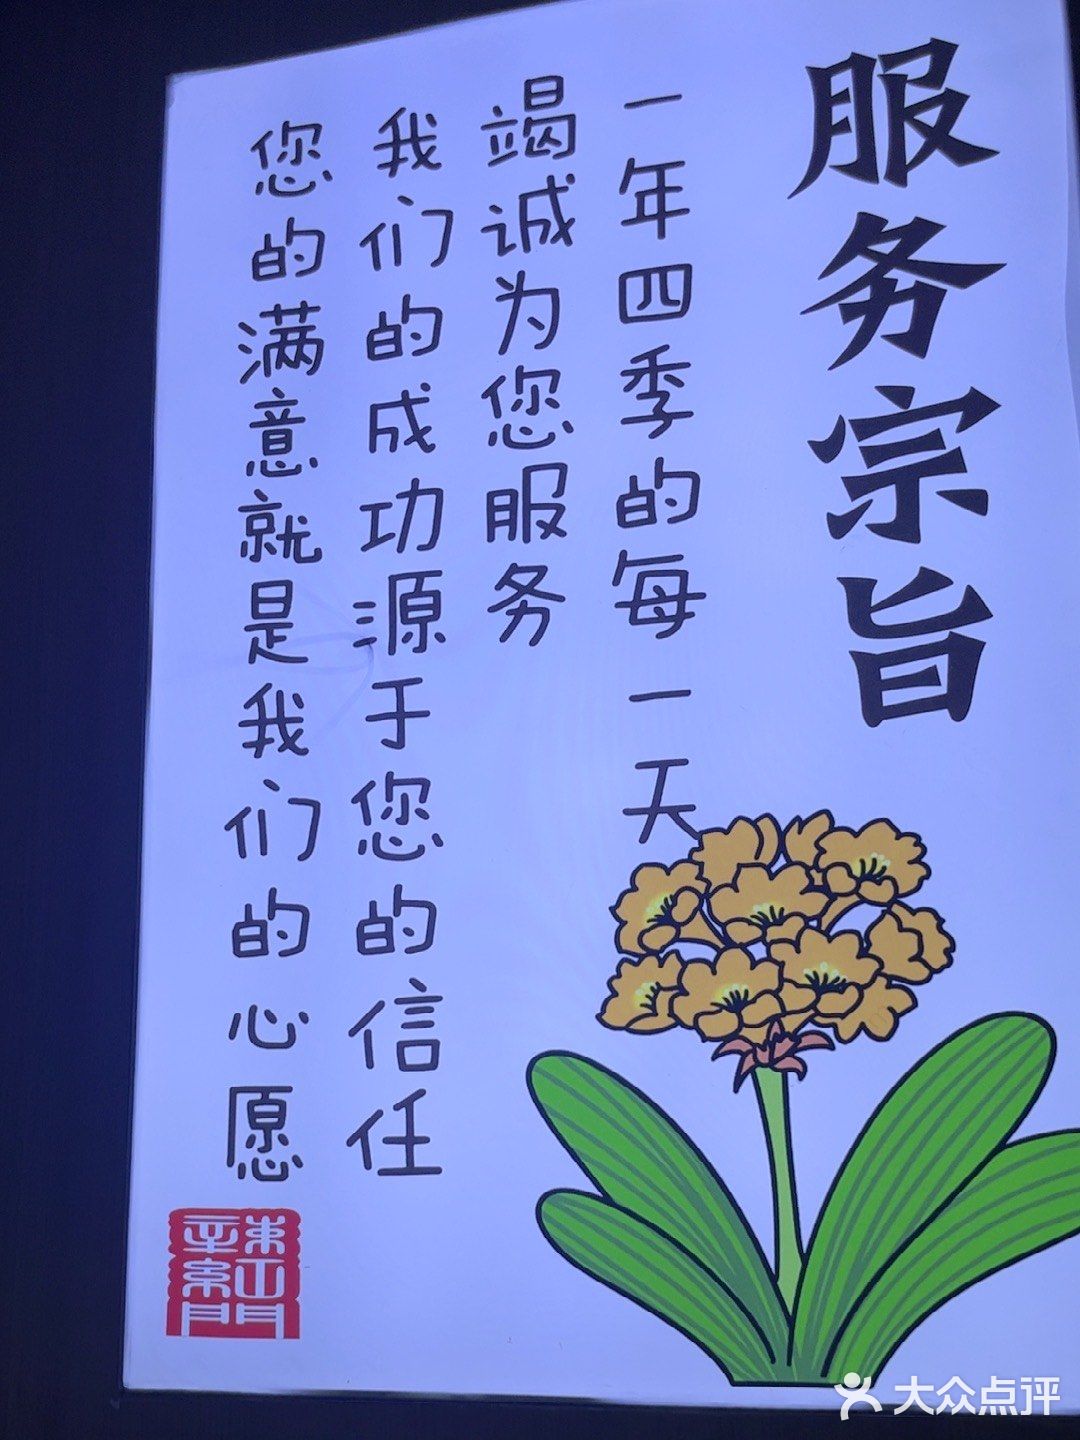 服务宗旨
一年四季的每一天
竭诚为您服务
我们的成功源于您的信任
您的满意就是我们的心愿
大众点评